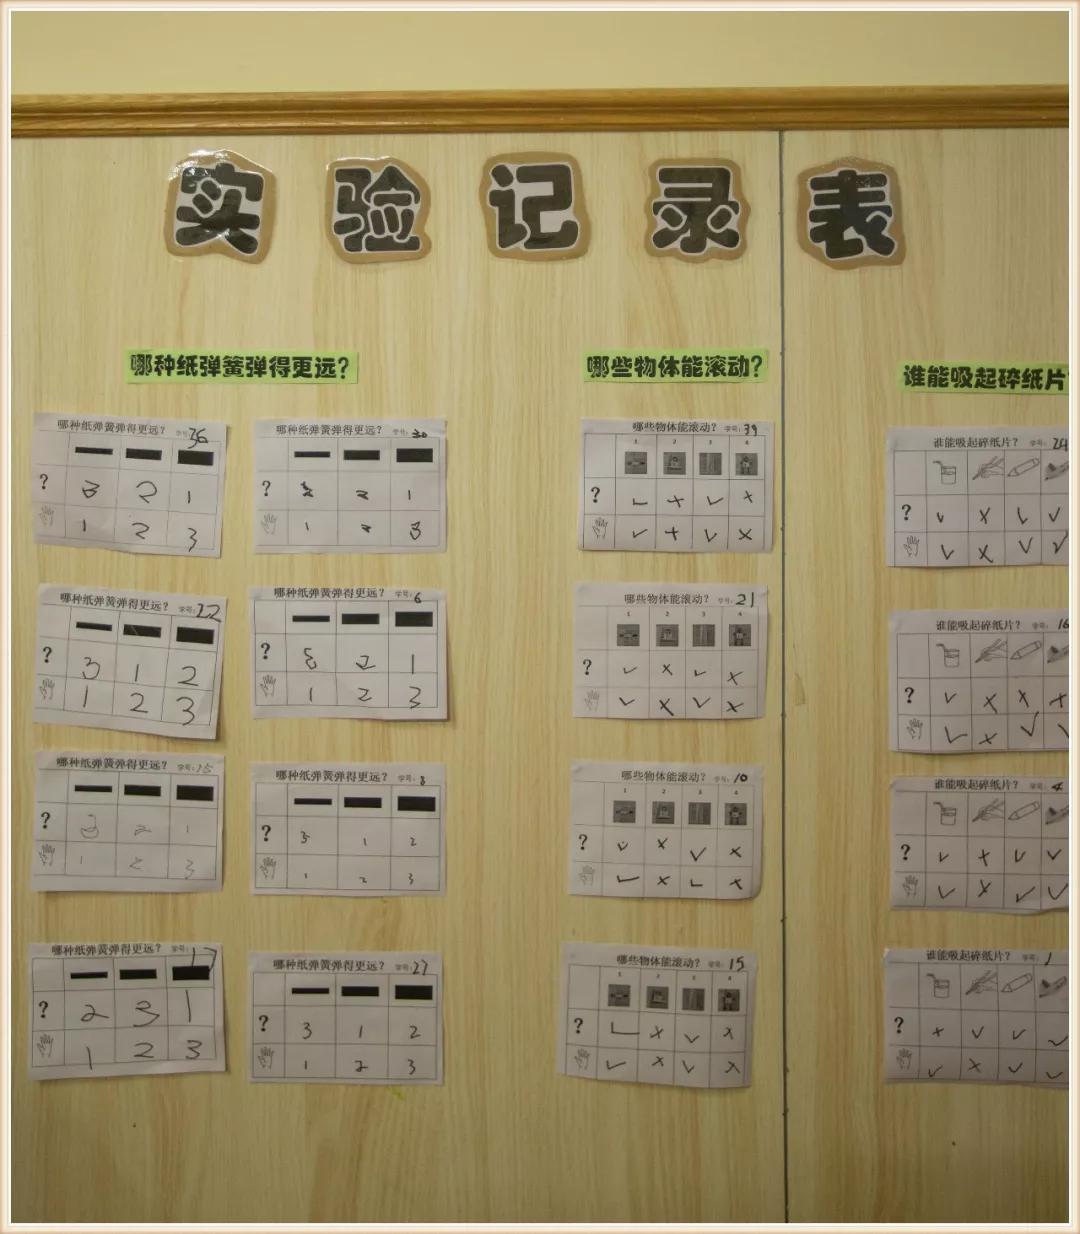 实验记录表
哪种纸弹簧弹得更远？
哪种纸弹簧弹得更远？ 学号：36
? 3 2 1
1 2 3
哪种纸弹簧弹得更远？ 学号：22
? 3 1 2
1 2 3
哪种纸弹簧弹得更远？ 学号：15
? 3 2 1
1 2 3
哪种纸弹簧弹得更远？ 学号：17
? 2 3 1
1 2 3
哪种纸弹簧弹得更远？ 学号：30
? 2 1
1 2 3
哪种纸弹簧弹得更远？ 学号：6
? 2 1
1 2 3
哪种纸弹簧弹得更远？ 学号：
? 3 1 2
1 2 3
哪种纸弹簧弹得更远？ 学号：27
? 3 1 2
1 2 3
哪些物体能滚动？
哪些物体能滚动？ 学号：39
1 2 3 4
? ✓ × ✓ ×
✓ × ✓ ×
哪些物体能滚动？ 学号：21
1 2 3 4
? ✓ × ✓ ×
✓ × ✓ ×
哪些物体能滚动？ 学号：10
1 2 3 4
? ✓ × ✓ ×
✓ × ✓ ×
哪些物体能滚动？ 学号：15
1 2 3 4
? ✓ × ✓ ×
✓ × ✓ ×
谁能吸起碎纸片
谁能吸起碎纸片？ 学号：24
? ✓ × ✓ ✓
✓ × ✓ ✓
谁能吸起碎纸片？ 学号：16
? ✓ × × ×
✓ × ✓ ✓
谁能吸起碎纸片？ 学号：4
? ✓ × ✓ ✓
✓ × ✓ ✓
谁能吸起碎纸片？ 学号：1
? × ✓ ✓ ✓
✓ × ✓ ✓